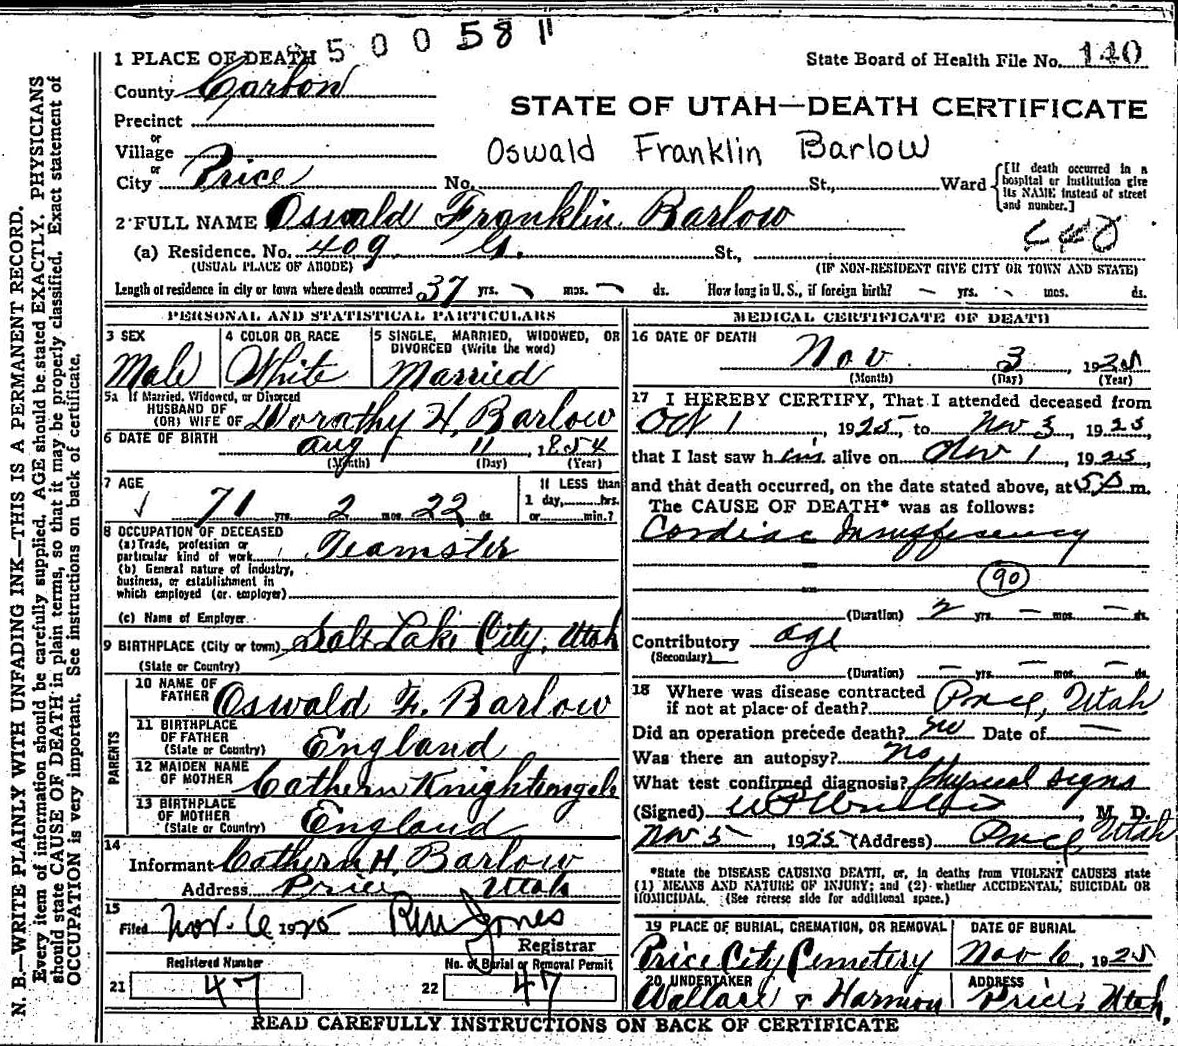 8500581
1 PLACE OF DEATH
State Board of Health File No. 140
County Carbon
STATE OF UTAH—DEATH CERTIFICATE
Precinct
or
Village
Oswald Franklin Barlow
or
City Price No. St., Ward
[If death occurred in a hospital or institution give its NAME instead of street and number.]
2 FULL NAME Oswald Franklin Barlow
(a) Residence. No. 409 St.,
(USUAL PLACE OF ABODE) (IF NON-RESIDENT GIVE CITY OR TOWN AND STATE)
Length of residence in city or town where death occurred 37 yrs. – mos. – ds. How long in U. S., if foreign birth? – yrs. – mos. ds.
PERSONAL AND STATISTICAL PARTICULARS
3 SEX
Male
4 COLOR OR RACE
White
5 SINGLE, MARRIED, WIDOWED, OR DIVORCED (Write the word)
Married
5a If Married, Widowed, or Divorced
HUSBAND OF
(OR) WIFE OF Dorathy H. Barlow
6 DATE OF BIRTH Aug 11, 1854
(Month) (Day) (Year)
7 AGE
71 yrs. 2 mos. 22 ds.
If LESS than
1 day, hrs.
or min.?
8 OCCUPATION OF DECEASED
(a) Trade, profession or
particular kind of work Teamster
(b) General nature of industry,
business, or establishment in
which employed (or employer)
(c) Name of Employer
9 BIRTHPLACE (City or town) Salt Lake City, Utah
(State or Country)
PARENTS
10 NAME OF
FATHER Oswald F. Barlow
11 BIRTHPLACE
OF FATHER
(State or Country) England
12 MAIDEN NAME
OF MOTHER Cathern Knightengale
13 BIRTHPLACE
OF MOTHER
(State or Country) England
14
Informant Cathern H. Barlow
Address Price Utah
15
Filed Nov. 6 1925 Jones
Registrar
Registered Number
No. of Burial or Removal Permit
21 47
22 47
MEDICAL CERTIFICATE OF DEATH
16 DATE OF DEATH
Nov 3, 1925
(Month) (Day) (Year)
17 I HEREBY CERTIFY, That I attended deceased from
Oct 1, 1925, to Nov 3, 1925,
that I last saw him alive on Nov 1, 1925,
and that death occurred, on the date stated above, at 5 P m.
The CAUSE OF DEATH* was as follows:
Cardiac Insuffesency
90
(Duration) 2 yrs. – mos. – ds.
Contributory age
(Secondary)
(Duration) – yrs. – mos. – ds.
18 Where was disease contracted
if not at place of death? Price, Utah
Did an operation precede death? no Date of –
Was there an autopsy? no
What test confirmed diagnosis? Physical signs
(Signed) M. D.
Nov 5, 1925 (Address) Price, Utah
*State the DISEASE CAUSING DEATH, or, in deaths from VIOLENT CAUSES state
(1) MEANS AND NATURE OF INJURY; and (2) whether ACCIDENTAL, SUICIDAL OR
HOMICIDAL. (See reverse side for additional space.)
19 PLACE OF BURIAL, CREMATION, OR REMOVAL
Price City Cemetery
DATE OF BURIAL
Nov 6, 1925
20 UNDERTAKER
Wallace & Harmon
ADDRESS
Price, Utah.
READ CAREFULLY INSTRUCTIONS ON BACK OF CERTIFICATE
N. B.—WRITE PLAINLY WITH UNFADING INK—THIS IS A PERMANENT RECORD.
Every item of information should be carefully supplied. AGE should be stated EXACTLY. PHYSICIANS
should state CAUSE OF DEATH in plain terms, so that it may be properly classified. Exact statement of
OCCUPATION is very important. See instructions on back of certificate.